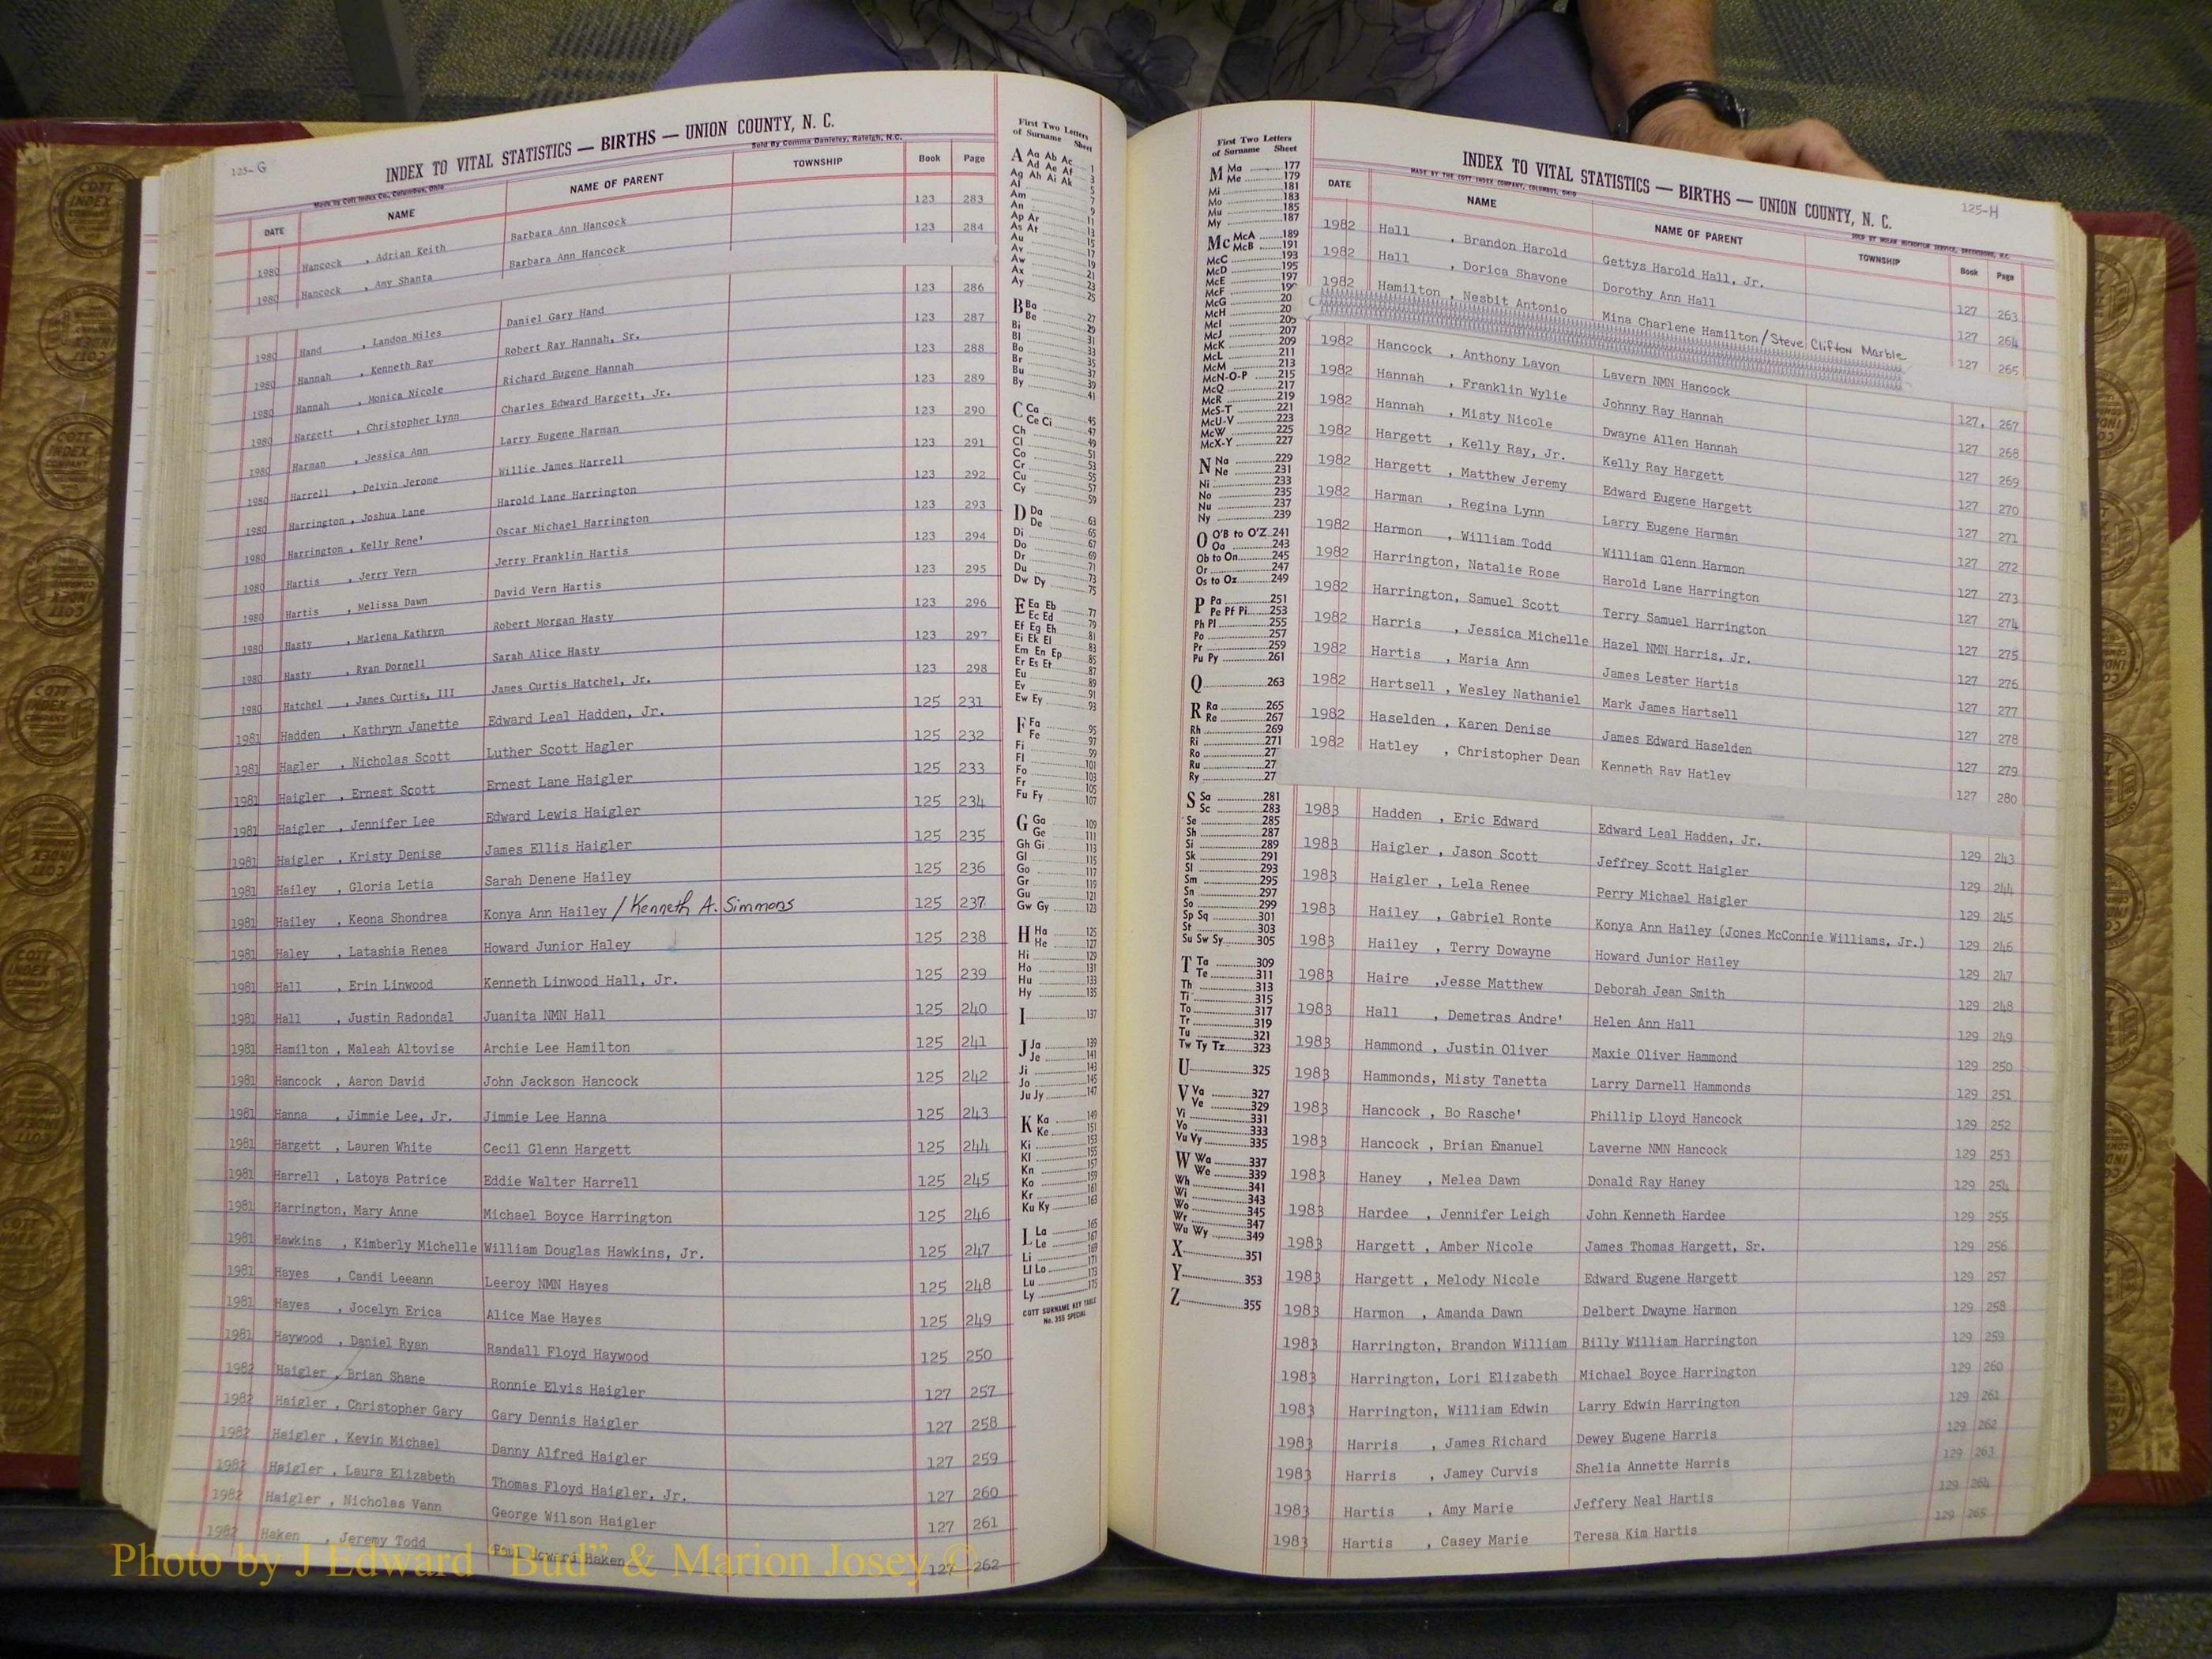 125-G
INDEX TO VITAL STATISTICS — BIRTHS — UNION COUNTY, N. C.
Made by Cott Index Co., Columbus, Ohio Sold By Comma Danieley, Raleigh, N.C.
DATE NAME NAME OF PARENT TOWNSHIP Book Page
1980 Hancock , Adrian Keith Barbara Ann Hancock 123 283
1980 Hancock , Amy Shanta Barbara Ann Hancock 123 284
1980 Hand , Landon Miles Daniel Gary Hand 123 286
1980 Hannah , Kenneth Ray Robert Ray Hannah, Sr. 123 287
1980 Hannah , Monica Nicole Richard Eugene Hannah 123 288
1980 Hargett , Christopher Lynn Charles Edward Hargett, Jr. 123 289
1980 Harman , Jessica Ann Larry Eugene Harman 123 290
1980 Harrell , Delvin Jerone Willie James Harrell 123 291
1980 Harrington , Joshua Lane Harold Lane Harrington 123 292
1980 Harrington , Kelly Rene' Oscar Michael Harrington 123 293
1980 Hartis , Jerry Vern Jerry Franklin Hartis 123 294
1980 Hartis , Melissa Dawn David Vern Hartis 123 295
1980 Hasty , Marlena Kathryn Robert Morgan Hasty 123 296
1980 Hasty , Ryan Dornell Sarah Alice Hasty 123 297
1980 Hatchel , James Curtis, III James Curtis Hatchel, Jr. 123 298
1981 Hadden , Kathryn Janette Edward Leal Hadden, Jr. 125 231
1981 Hagler , Nicholas Scott Luther Scott Hagler 125 232
1981 Haigler , Ernest Scott Ernest Lane Haigler 125 233
1981 Haigler , Jennifer Lee Edward Lewis Haigler 125 234
1981 Haigler , Kristy Denise James Ellis Haigler 125 235
1981 Hailey , Gloria Letia Sarah Denene Hailey 125 236
1981 Hailey , Keona Shondrea Konya Ann Hailey / Kenneth A. Simmons 125 237
1981 Haley , Latashia Renea Howard Junior Haley 125 238
1981 Hall , Erin Linwood Kenneth Linwood Hall, Jr. 125 239
1981 Hall , Justin Radondal Juanita NMN Hall 125 240
1981 Hamilton , Maleah Altovise Archie Lee Hamilton 125 241
1981 Hancock , Aaron David John Jackson Hancock 125 242
1981 Hanna , Jimmie Lee, Jr. Jimmie Lee Hanna 125 243
1981 Hargett , Lauren White Cecil Glenn Hargett 125 244
1981 Harrell , Latoya Patrice Eddie Walter Harrell 125 245
1981 Harrington, Mary Anne Michael Boyce Harrington 125 246
1981 Hawkins , Kimberly Michelle William Douglas Hawkins, Jr. 125 247
1981 Hayes , Candi Leeann Leeroy NMN Hayes 125 248
1981 Hayes , Jocelyn Erica Alice Mae Hayes 125 249
1981 Haywood , Daniel Ryan Randall Floyd Haywood 125 250
1982 Haigler , Brian Shane Ronnie Elvis Haigler 127 257
1982 Haigler , Christopher Gary Gary Dennis Haigler 127 258
1982 Haigler , Kevin Michael Danny Alfred Haigler 127 259
1982 Haigler , Laura Elizabeth Thomas Floyd Haigler, Jr. 127 260
1982 Haigler , Nicholas Vann George Wilson Haigler 127 261
1982 Haken , Jeremy Todd Haken 127 262
First Two Letters
of Surname Sheet
A Aa Ab Ac 1
Ad Ae Af 3
Ag Ah Ai Ak 5
Al 7
Am 9
An 11
Ap Ar 13
As At 15
Au 17
Av 19
Aw 21
Ax 23
Ay 25
B Ba 27
Be 29
Bi 31
Bl 33
Bo 35
Br 37
Bu 39
By 41
C Ca 45
Ce Ci 47
Ch 49
Cl 51
Co 53
Cr 55
Cu 57
Cy 59
D Da 63
De 65
Di 67
Do 69
Dr 71
Du 73
Dw Dy 75
E Ea Eb 77
Ec Ed 79
Ef Eg Eh 81
Ei Ek El 83
Em En Ep 85
Er Es Et 87
Eu 89
Ev 91
Ew Ey 93
F Fa 95
Fe 97
Fi 99
Fl 101
Fo 103
Fr 105
Fu Fy 107
G Ga 109
Ge 111
Gh Gi 113
Gl 115
Go 117
Gr 119
Gu 121
Gw Gy 123
H Ha 125
He 127
Hi 129
Ho 131
Hu 133
Hy 135
I 137
J Ja 139
Je 141
Ji 143
Jo 145
Ju Jy 147
K Ka 149
Ke 151
Ki 153
Kl 155
Kn 157
Ko 159
Kr 161
Ku Ky 163
L La 165
Le 167
Li 169
Ll Lo 171
Lu 173
Ly 175
COTT SURNAME KEY TABLE
No. 355 SPECIAL
First Two Letters
of Surname Sheet
M Ma 177
Me 179
Mi 181
Mo 183
Mu 185
My 187
Mc McA 189
McB 191
McC 193
McD 195
McE 197
McF 19
McG 20
McH 20
McI 205
McJ 207
McK 209
McL 211
McM 213
McN-O-P 215
McQ 217
McR 219
McS-T 221
McU-V 223
McW 225
McX-Y 227
N Na 229
Ne 231
Ni 233
No 235
Nu 237
Ny 239
O O'B to O'Z 241
Oa 243
Ob to On 245
Or 247
Os to Oz 249
P Pa 251
Pe Pf Pi 253
Ph Pl 255
Po 257
Pr 259
Pu Py 261
Q 263
R Ra 265
Re 267
Rh 269
Ri 271
Ro 27
Ru 27
Ry 27
S Sa 281
Sc 283
Se 285
Sh 287
Si 289
Sk 291
Sl 293
Sm 295
Sn 297
So 299
Sp Sq 301
St 303
Su Sw Sy 305
T Ta 309
Te 311
Th 313
Ti 315
To 317
Tr 319
Tu 321
Tw Ty Tz 323
U 325
V Va 327
Ve 329
Vi 331
Vo 333
Vu Vy 335
W Wa 337
We 339
Wh 341
Wi 343
Wo 345
Wr 347
Wu Wy 349
X 351
Y 353
Z 355
125-H
INDEX TO VITAL STATISTICS — BIRTHS — UNION COUNTY, N. C.
MADE BY THE COTT INDEX COMPANY, COLUMBUS, OHIO SOLD BY MICROFILM SERVICE, GREENSBORO, N.C.
DATE NAME NAME OF PARENT TOWNSHIP Book Page
1982 Hall , Brandon Harold Gettys Harold Hall, Jr. 127 263
1982 Hall , Dorica Shavone Dorothy Ann Hall 127 264
1982 Hamilton , Nesbit Antonio Mina Charlene Hamilton / Steve Clifton Marble 127 265
1982 Hancock , Anthony Lavon Lavern NMN Hancock 127, 267
1982 Hannah , Franklin Wylie Johnny Ray Hannah 127 268
1982 Hannah , Misty Nicole Dwayne Allen Hannah 127 269
1982 Hargett , Kelly Ray, Jr. Kelly Ray Hargett 127 270
1982 Hargett , Matthew Jeremy Edward Eugene Hargett 127 271
1982 Harman , Regina Lynn Larry Eugene Harman 127 272
1982 Harmon , William Todd William Glenn Harmon 127 273
1982 Harrington, Natalie Rose Harold Lane Harrington 127 274
1982 Harrington, Samuel Scott Terry Samuel Harrington 127 275
1982 Harris , Jessica Michelle Hazel NMN Harris, Jr. 127 276
1982 Hartis , Maria Ann James Lester Hartis 127 277
1982 Hartsell , Wesley Nathaniel Mark James Hartsell 127 278
1982 Haselden , Karen Denise James Edward Haselden 127 279
1982 Hatley , Christopher Dean Kenneth Ray Hatley 127 280
1983 Hadden , Eric Edward Edward Leal Hadden, Jr. 129 243
1983 Haigler , Jason Scott Jeffrey Scott Haigler 129 244
1983 Haigler , Lela Renee Perry Michael Haigler 129 245
1983 Hailey , Gabriel Ronte Konya Ann Hailey (Jones McConnie Williams, Jr.) 129 246
1983 Hailey , Terry Dowayne Howard Junior Hailey 129 247
1983 Haire ,Jesse Matthew Deborah Jean Smith 129 248
1983 Hall , Demetras Andre' Helen Ann Hall 129 249
1983 Hammond , Justin Oliver Maxie Oliver Hammond 129 250
1983 Hammonds, Misty Tanetta Larry Darnell Hammonds 129 251
1983 Hancock , Bo Rasche' Phillip Lloyd Hancock 129 252
1983 Hancock , Brian Emanuel Laverne NMN Hancock 129 253
1983 Haney , Melea Dawn Donald Ray Haney 129 254
1983 Hardee , Jennifer Leigh John Kenneth Hardee 129 255
1983 Hargett , Amber Nicole James Thomas Hargett, Sr. 129 256
1983 Hargett , Melody Nicole Edward Eugene Hargett 129 257
1983 Harmon , Amanda Dawn Delbert Dwayne Harmon 129 258
1983 Harrington, Brandon William Billy William Harrington 129 259
1983 Harrington, Lori Elizabeth Michael Boyce Harrington 129 260
1983 Harrington, William Edwin Larry Edwin Harrington 129 261
1983 Harris , James Richard Dewey Eugene Harris 129 262
1983 Harris , Jamey Curvis Shelia Annette Harris 129 263
1983 Hartis , Amy Marie Jeffery Neal Hartis 129 264
1983 Hartis , Casey Marie Teresa Kim Hartis 129 265
Photo by J Edward "Bud" & Marion Josey ©